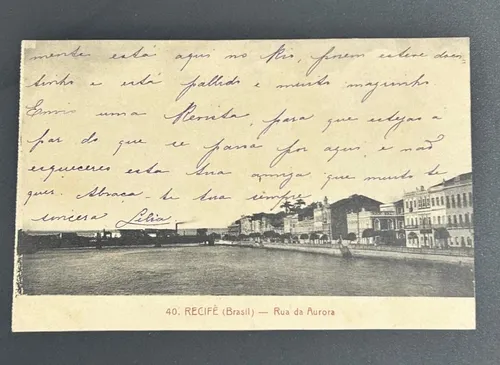 mente está aqui no Rio, porem esteve doen-
tinho e está pallido e muito magrinho.
Envio uma Revista, para que estejas a
par do que se passa por aqui, e não
esqueceres esta tua amiga que muito te
quer. Abraça-te tua sempre
sincera Lilia
40. RECIFE (Brasil) — Rua da Aurora